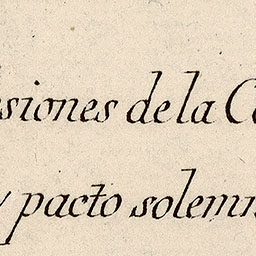 siones de la C
y pacto solemn